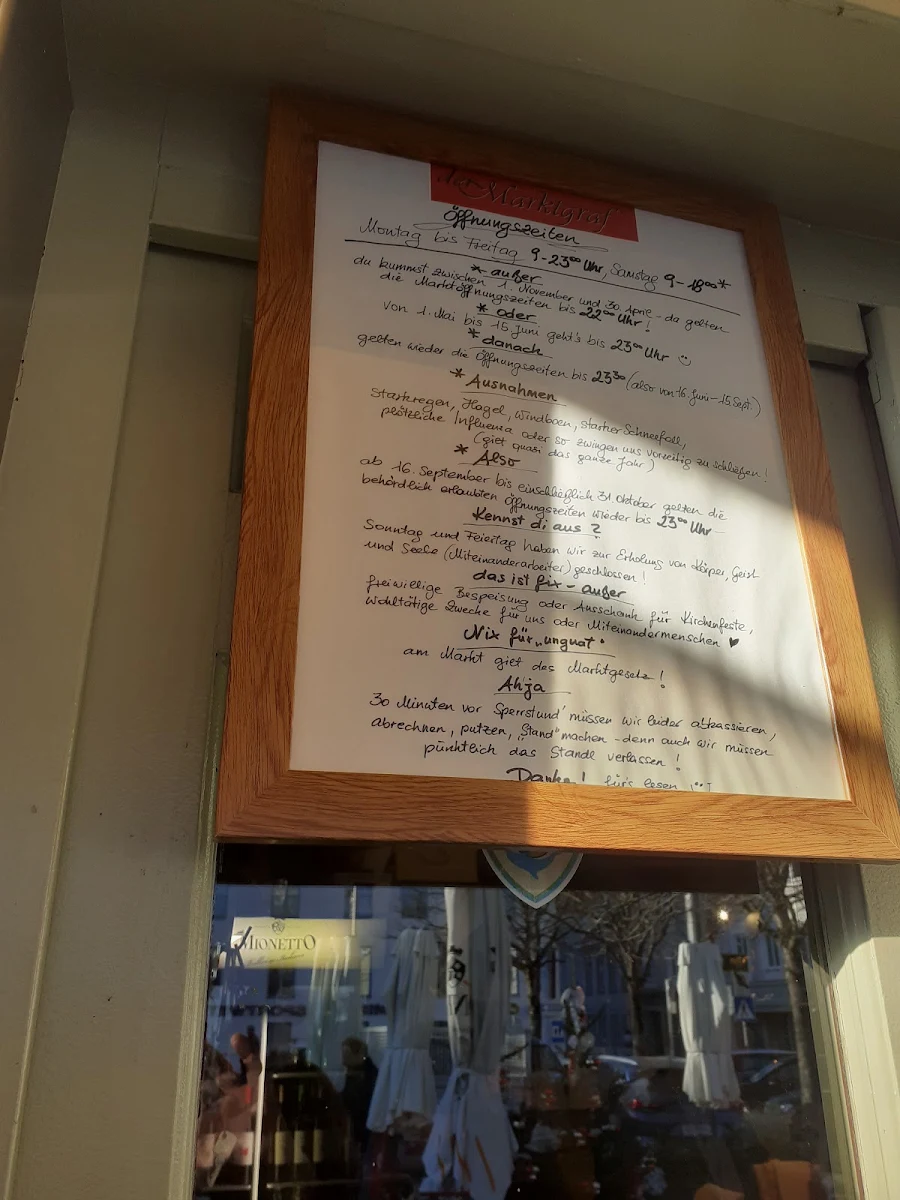 der Marktgraf
Öffnungszeiten
Montag bis Freitag 9-23⁰⁰ Uhr, Samstag 9-18⁰⁰*
* außer
du kummst zwischen 1. November und 30. April - da gelten
die Marktöffnungszeiten bis 22⁰⁰ Uhr!
* oder
von 1. Mai bis 15. Juni geht's bis 23⁰⁰ Uhr ☺
* danach
gelten wieder die Öffnungszeiten bis 23³⁰ (also von 16. Juni - 15. Sept.)
* Ausnahmen
Starkregen, Hagel, Windböen, starker Schneefall,
plötzliche Influenza oder so zwingen uns vorzeitig zu schließen!
(giet quasi das ganze Jahr)
* Also
ab 16. September bis einschließlich 31. Oktober gelten die
behördlich erlaubten Öffnungszeiten wieder bis 23⁰⁰ Uhr
Kennst di aus?
Sonntag und Feiertag haben wir zur Erholung von Körper, Geist
und Seele (Miteinanderarbeiter) geschlossen!
das ist fix - außer
freiwillige Bespeisung oder Ausschank für Kirchenfeste,
wohltätige Zwecke für uns oder Miteinandermenschen ♥
Nix für „unguat"
am Markt giet das Marktgesetz!
Ahja
30 Minuten vor Sperrstund' müssen wir leider abkassieren,
abrechnen, putzen, „Stand" machen - denn auch wir müssen
pünktlich das Standl verlassen!
Danke! fürs lesen
MIONETTO